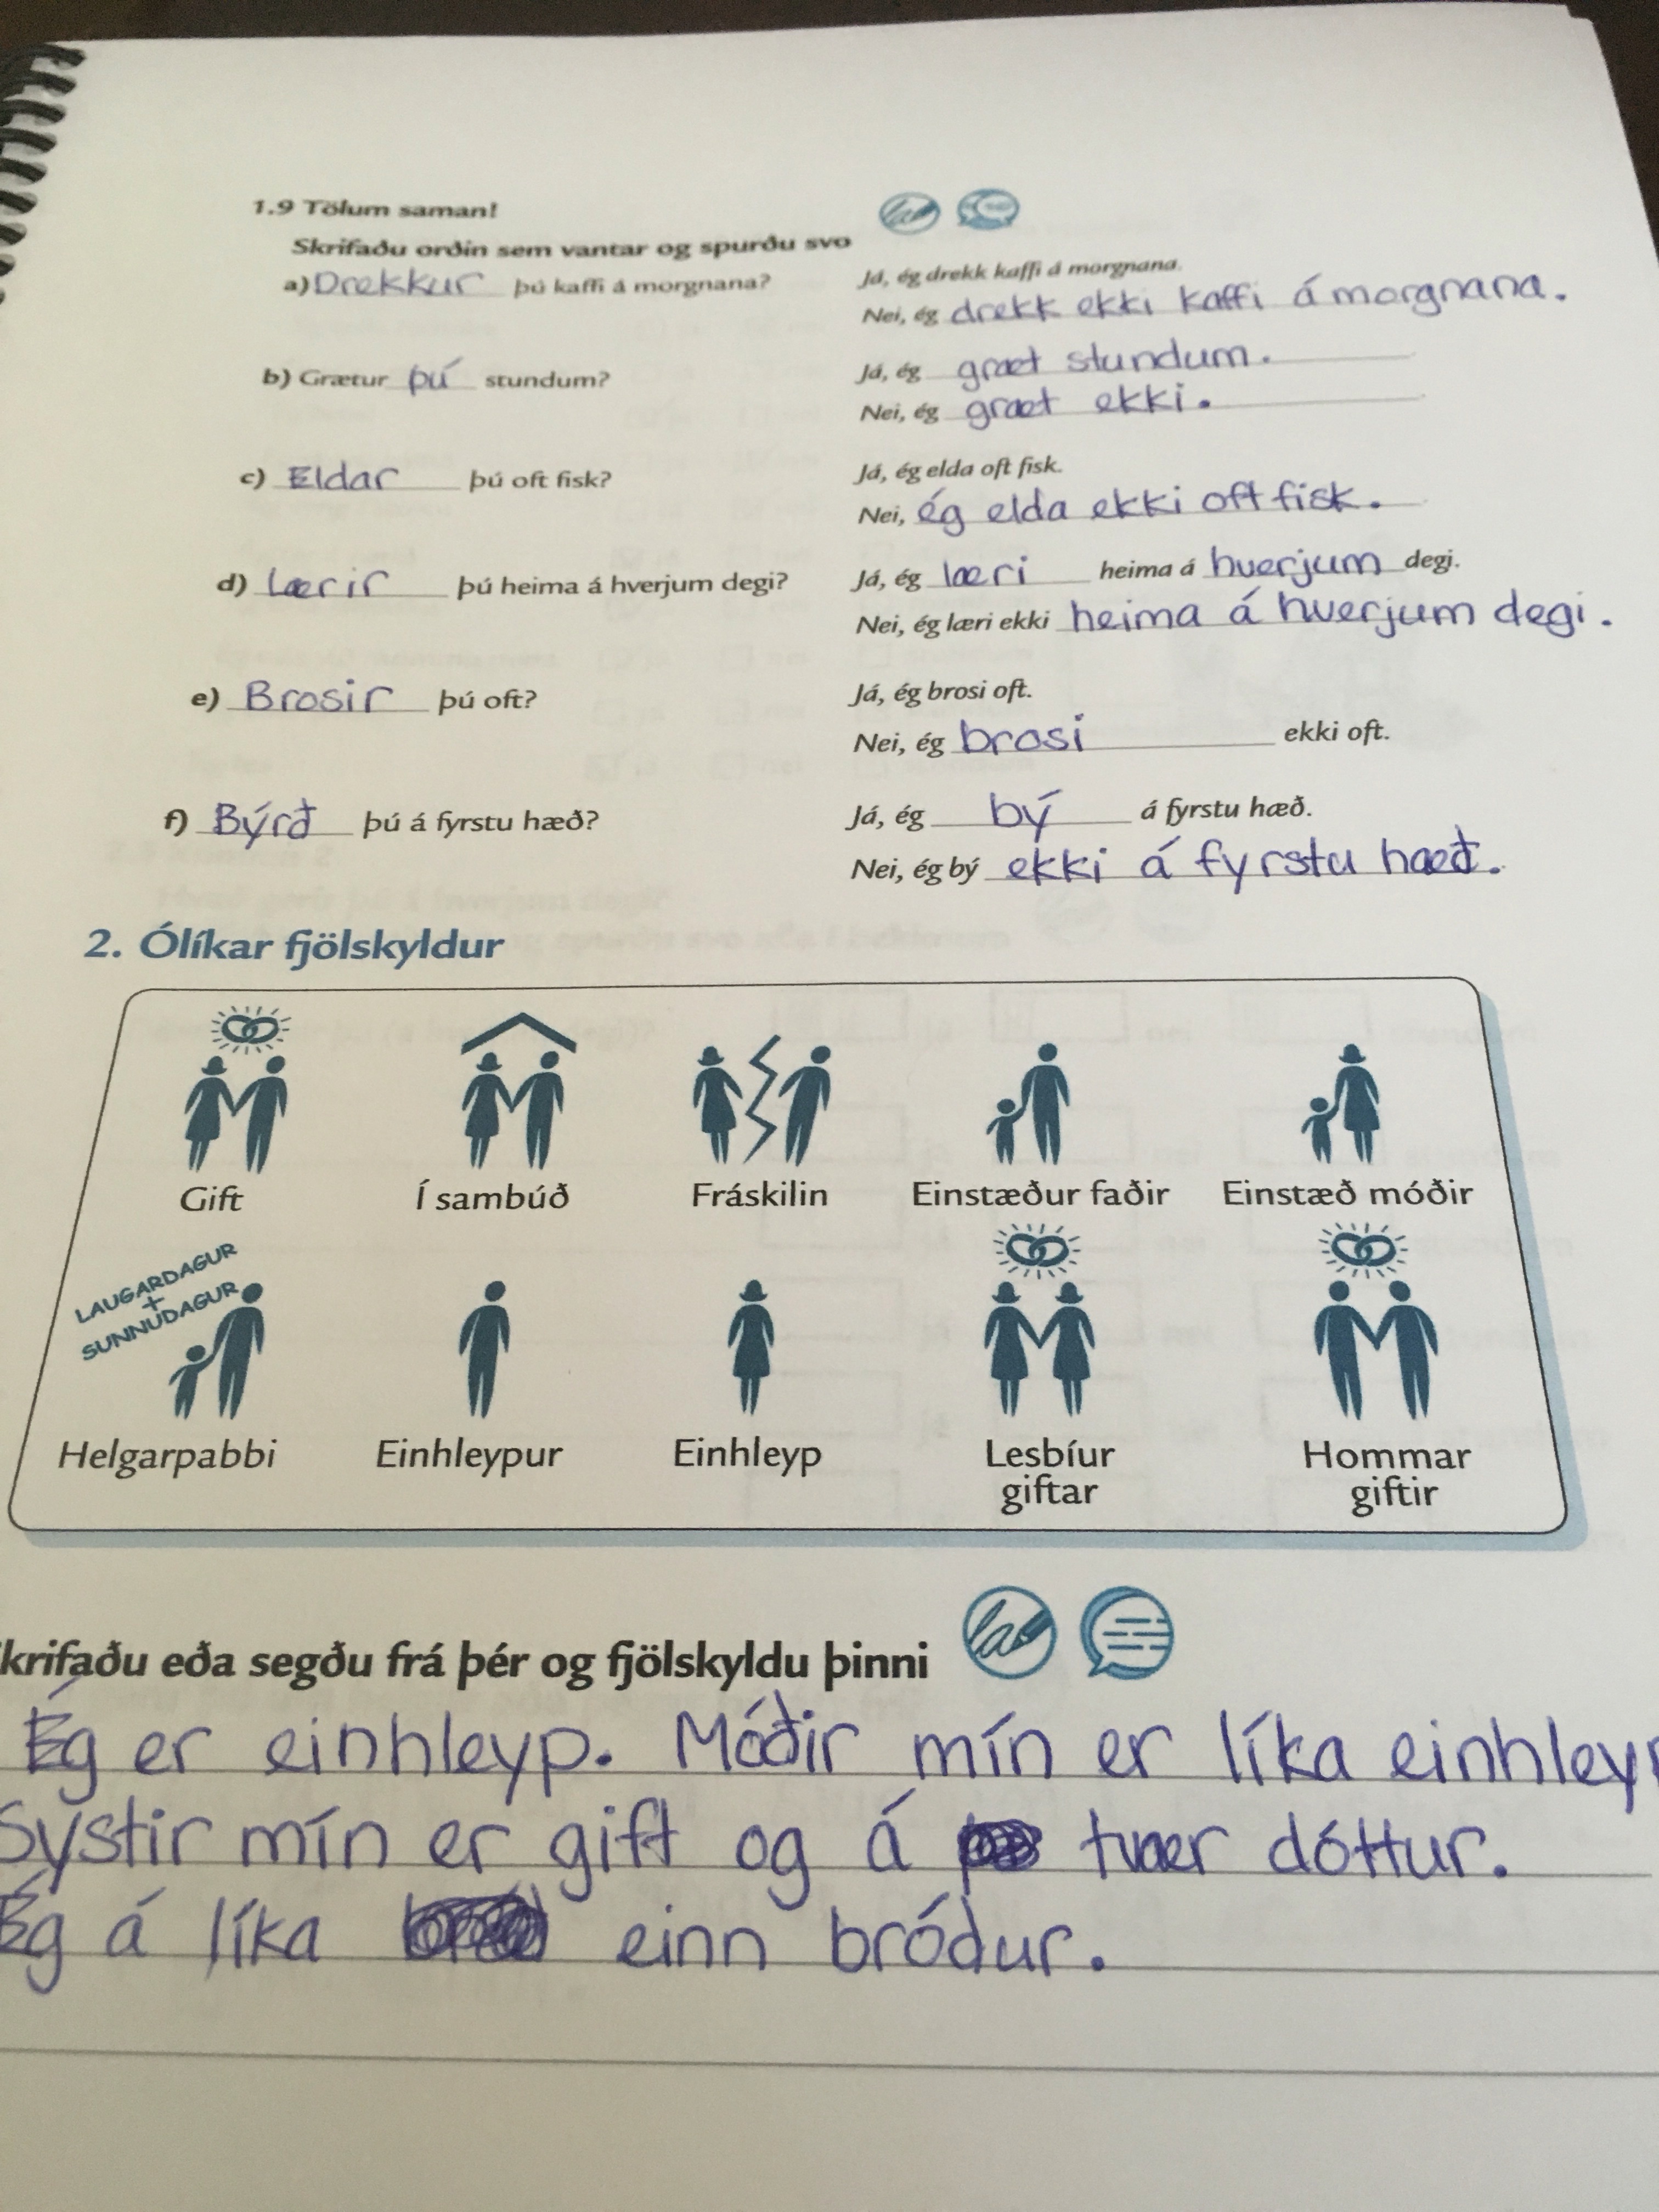 1.9 Tölum saman!
Skrifaðu orðin sem vantar og spurðu svo
a) Drekkur þú kaffi á morgnana? Já, ég drekk kaffi á morgnana.
Nei, ég drekk ekki kaffi á morgnana.
b) Grætur þú stundum? Já, ég græt stundum.
Nei, ég græt ekki.
c) Eldar þú oft fisk? Já, ég elda oft fisk.
Nei, ég elda ekki oft fisk.
d) Lærir þú heima á hverjum degi? Já, ég læri heima á hverjum degi.
Nei, ég læri ekki heima á hverjum degi.
e) Brosir þú oft? Já, ég brosi oft.
Nei, ég brosi ekki oft.
f) Býrð þú á fyrstu hæð? Já, ég bý á fyrstu hæð.
Nei, ég bý ekki á fyrstu hæð.
2. Ólíkar fjölskyldur
Gift Í sambúð Fráskilin Einstæður faðir Einstæð móðir
LAUGARDAGUR
+
SUNNUDAGUR
Helgarpabbi Einhleypur Einhleyp Lesbíur Hommar
giftar giftir
krifaðu eða segðu frá þér og fjölskyldu þinni
Ég er einhleyp. Móðir mín er líka einhleyp
Systir mín er gift og á tvær dóttur.
Ég á líka einn bródur.